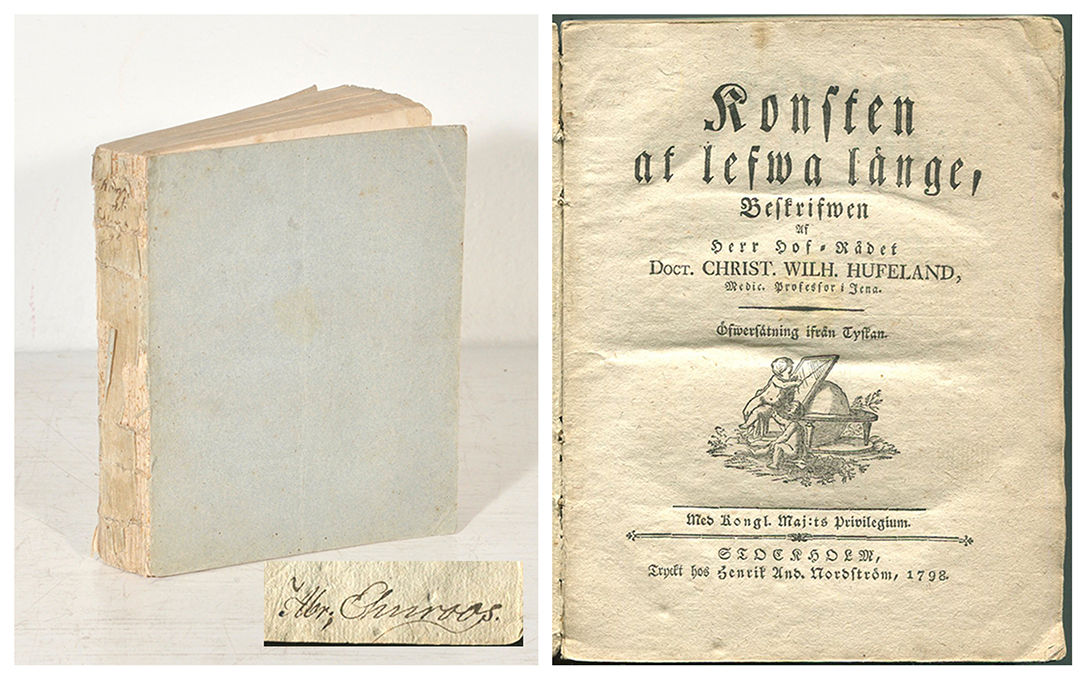 Abr; Churoos.
Konsten
at lefwa länge,
Beskrifwen
Af
Herr Hof-Rådet
DOCT. CHRIST. WILH. HUFELAND,
Medic. Professor i Jena.
Öfwersätning ifrån Tyskan.
Med Kongl. Maj:ts Privilegium.
STOCKHOLM,
Tryckt hos Henrik And. Nordström, 1798.